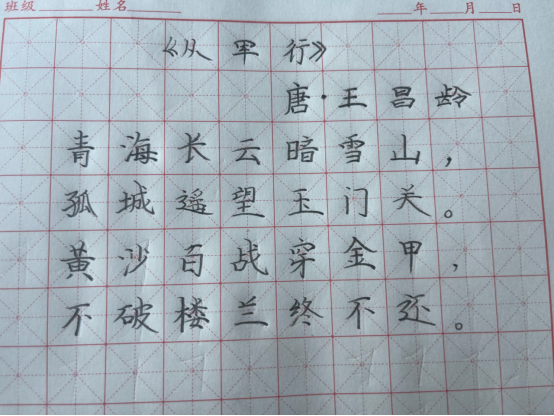 班级 姓名 年 月 日
《从军行》
唐·王昌龄
青海长云暗雪山，
孤城遥望玉门关。
黄沙百战穿金甲，
不破楼兰终不还。